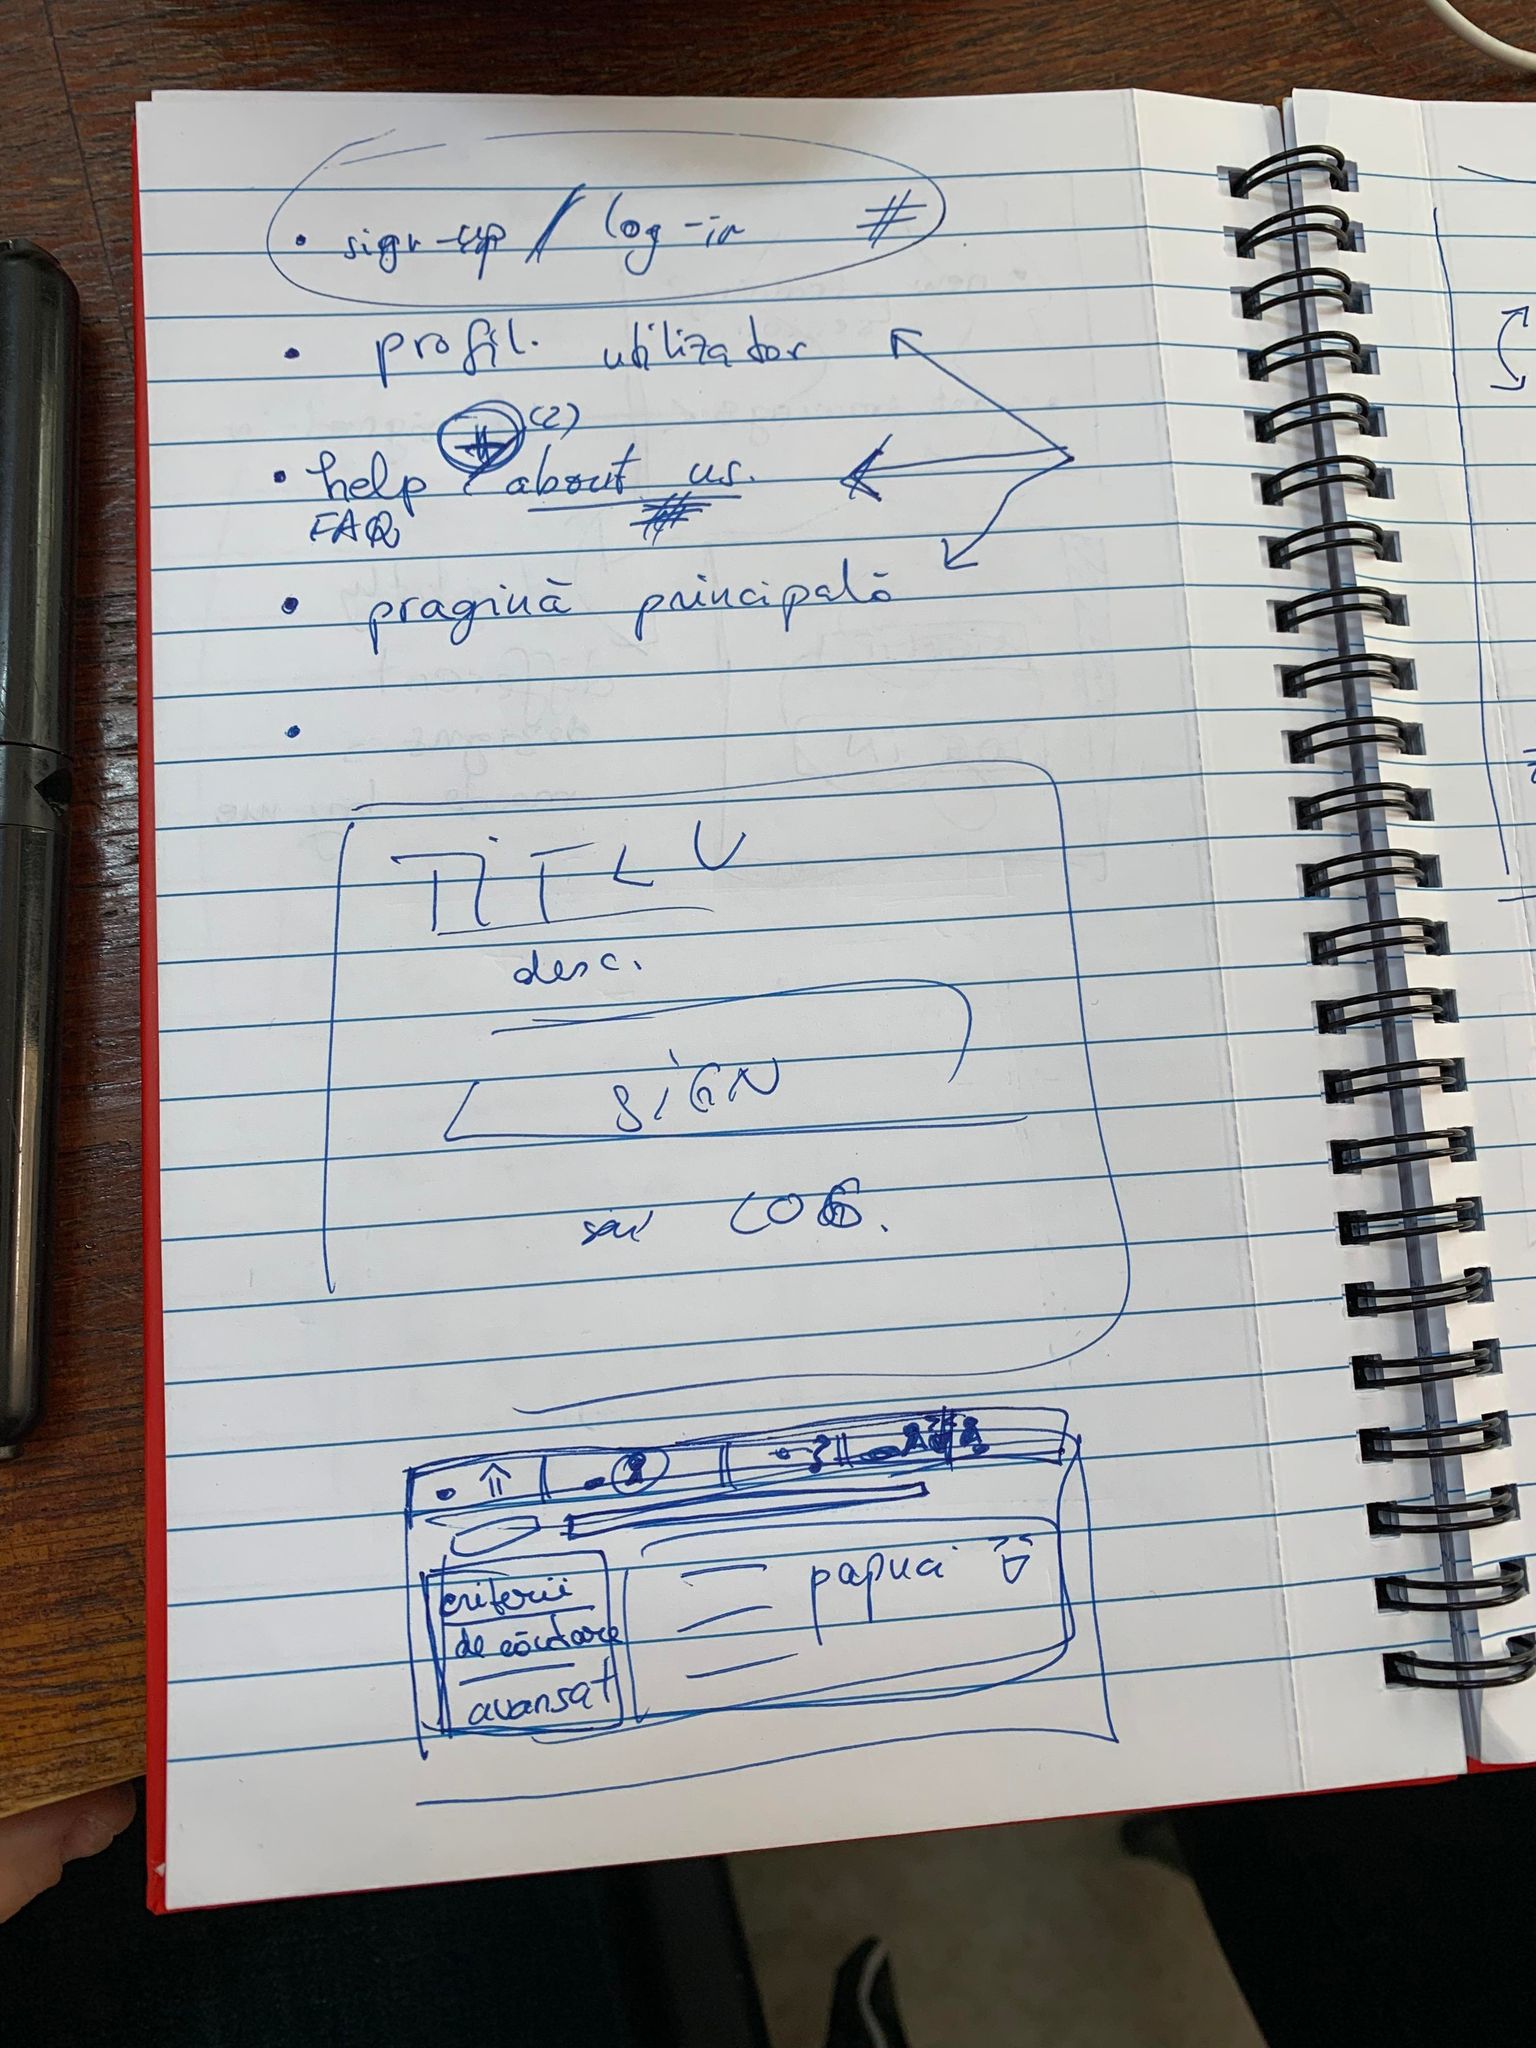 • sign-up / log-in #
• profil. utilizador
# (2)
• help / about us.
FAQ #
• pragină principală
•
TiTLU
desc.
SiGN
sau LOG.
criterii
papuci
de căutare
avansat